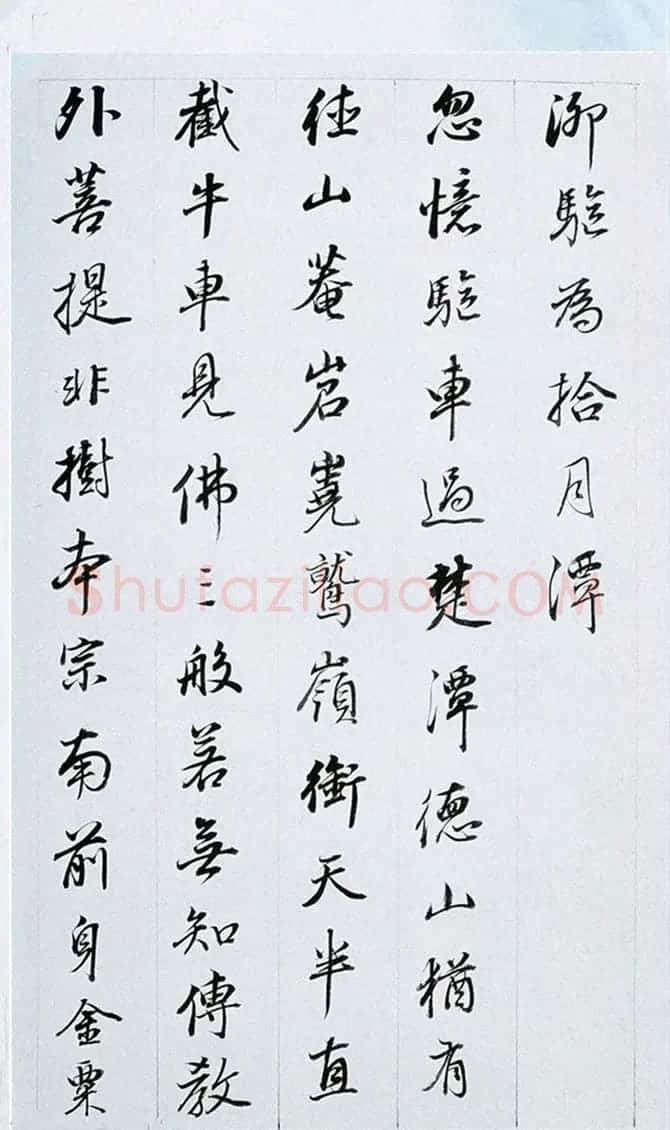 柳驗為拾月潭
忽憶驗車過楚潭德山猶有
徑山菴岧嶤鷲嶺衝天半直
截牛車見佛三般若無知傳教
外菩提非樹本宗南前身金粟
shufaziliao.COM